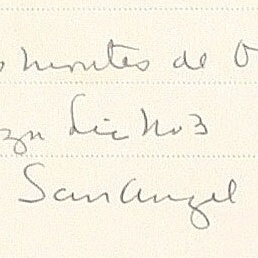 Montes de O
Lic No 3
San Angel